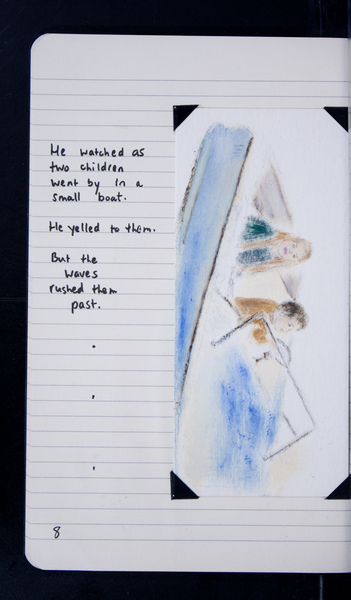 He watched as
two children
went by in a
small boat.
He yelled to them.
But the
waves
rushed them
past.
.
.
.
8